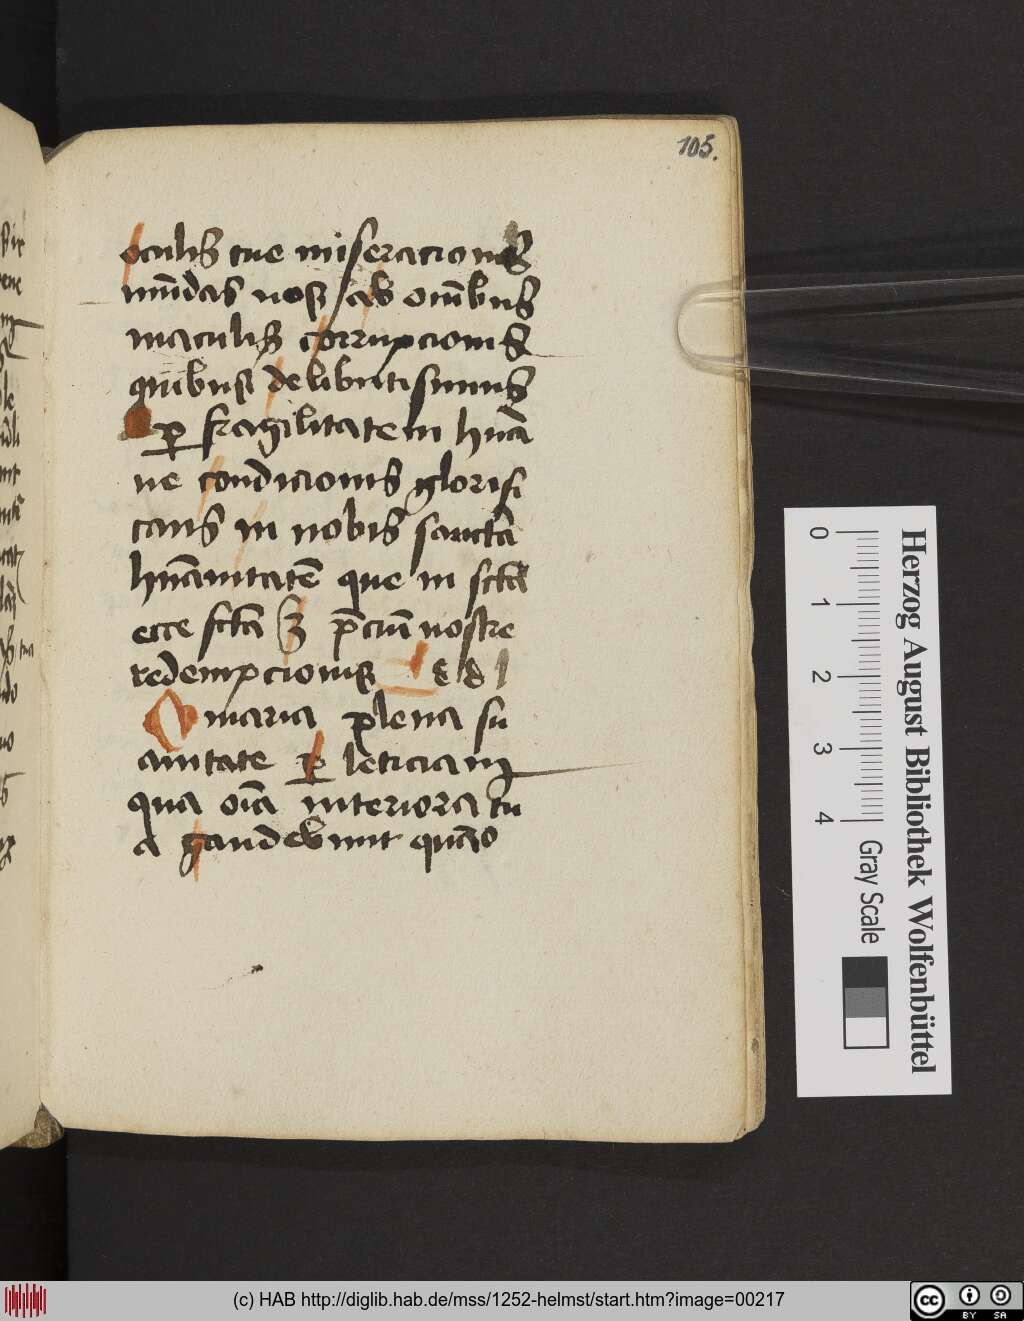 105.
oculis tue miseracionis
mūdas nos ab oīnbus
maculis corrupcionis
quibus delibuti sumus
ꝑ fragilitatem hūā
ne condicionis glorifi
cans in nobis sanctā
hūānitatē que in sctā
ecce sctā
p̄ciū nostre
redempcionis
O maria plena su
auitate ꝑ leticiam
qua oīa interiora tu
a gaudebunt quādo
0 1 2 3 4
Gray Scale
Herzog August Bibliothek Wolfenbüttel
(c) HAB http://diglib.hab.de/mss/1252-helmst/start.htm?image=00217
cc BY SA